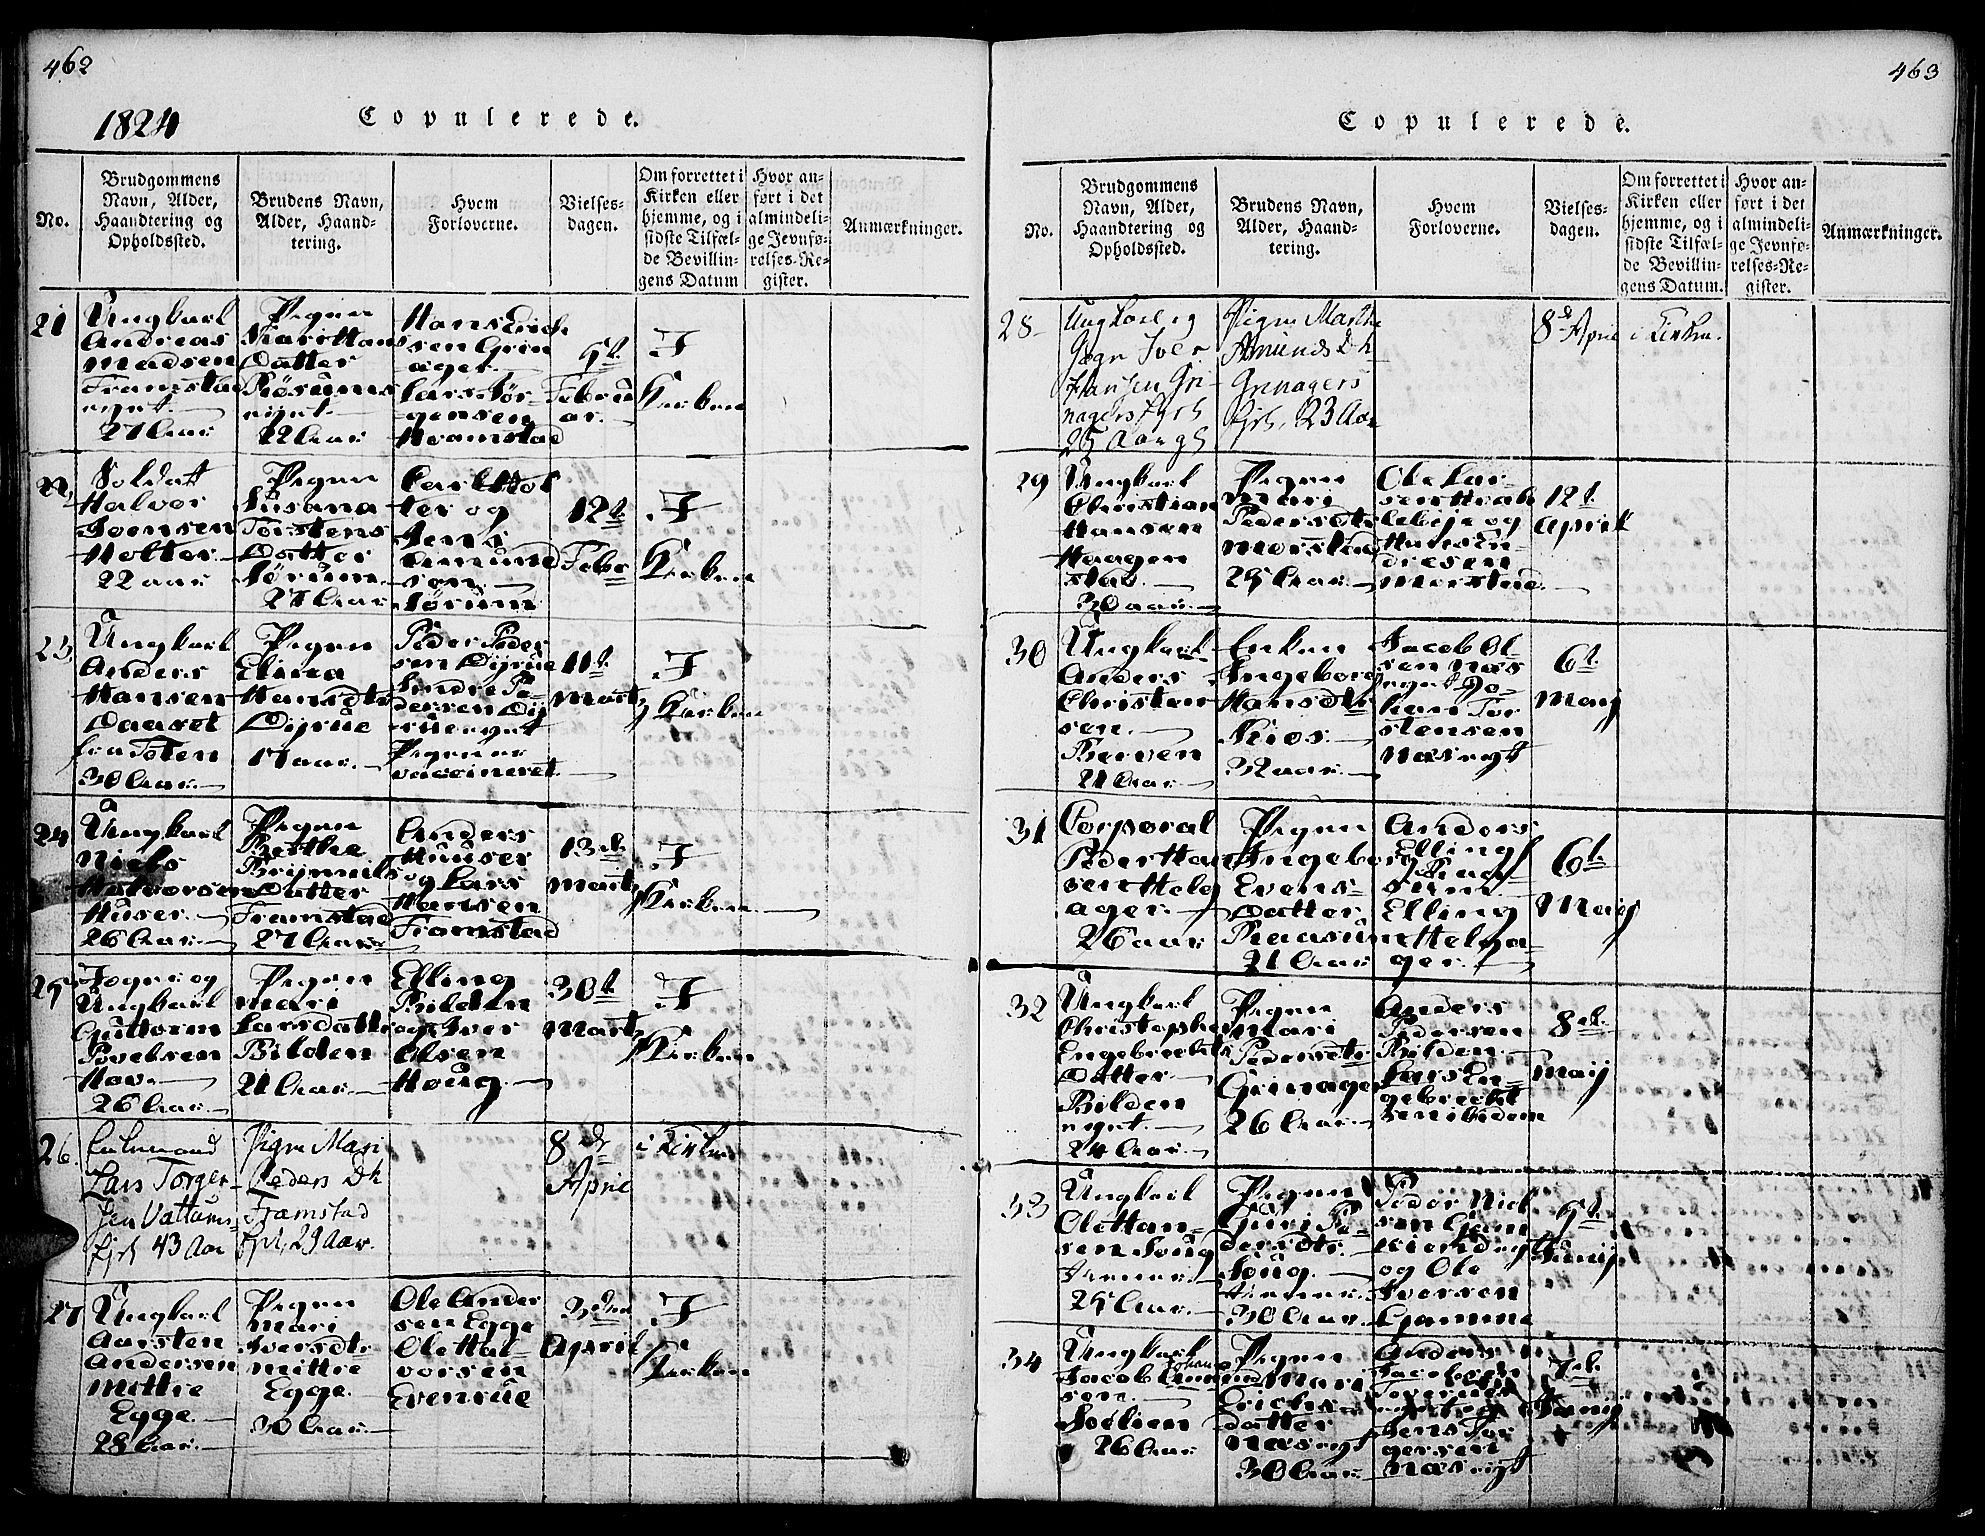 462
1824
Copulerede.
No.
Brudgommens
Navn, Alder,
Haandtering og
Opholdssted.
Brudens Navn,
Alder, Haand-
tering.
Hvem
Forloverne.
Vielses-
dagen.
Om forrettet i
Kirken eller
hjemme, og i
sidste Tilfæl-
de Bevillin-
gens Datum
Hvor an-
ført i det
almindeli-
ge Jevnfø-
relses-Re-
gister.
Anmærkninger.
21
Ungkarl
Andreas
Madsen
Framstad
eygnt.
27 Aar
Pigen
Marit Hans
Datter
Røsums
eygnt
22 Aar
Hans Erich
sen Grin
ager
Lars Jør
gensen
Framstad
5t.
Februa
ar.
I
Kirken
22,
Soldatt
Halvor
Joensen
Holter
22 aar
Pigen
Susana
Torstens
Datter
Sørum
27 Aar
Carl Hol
ter og
Jens
Amund
sen
Sørum
12t.
Febr
I
Kirken
23,
Ungkarl
Anders
Hansen
Daaset
fra Toten
30 Aar.
Pigen
Elina
Hansdtr
Dijrue
17 aar.
Peder Peder
sen Dijrue
Pe-
dersen Dij
rue eygnt
Pigen er
vaccineret
11t.
Martz
I
Kirken
24
Ungkarl
Niels
Halvorsen
Huser
26 Aar.
Pigen
Berthe
Brijnnils
Datter
Framstad
27 Aar
Anders
Huuser
og Lars
Hansen
Framstad
13de.
Martz
I
Kirken
25
og
Ungkarl
Guttorm
Povelsen
Hov
26 Aar.
Pigen
Mari
Larsdatter
Bilden
21 Aar.
Elling
Bilden
og Iver
Olsen
Houg
30t.
Martz
I
Kirken
26.
Enkemand
Lars Torger-
sen Vattums-
Ejeh 43 Aar
Pigen Mari
Peders Dtr
Framstad
Ejeh, 29 Aar.
8de
April
i Kirken
27
Ungkarl
Aarsten
Andersen
Mittre
Egge
28 Aar.
Pigen
Mari
Iversdtr
Mittre
Egge
30 Aar.
Ole Ander
sen Egge
Ole Hal-
vorsen
Evenrue
3den
April
I
Kirken
463
Copulerede.
No.
Brudgommens
Navn, Alder,
Haandtering og
Opholdssted.
Brudens Navn,
Alder, Haand-
tering.
Hvem
Forloverne.
Vielses-
dagen.
Om forrettet i
Kirken eller
hjemme, og i
sidste Tilfæl-
de Bevillin-
gens Datum.
Hvor an-
ført i det
almindeli-
ge Jevnfø-
relses-Re-
gister.
Anmærkninger.
28
Ungkarl og
Iver
Hansen Gri-
nagers Ejeh
25 Aar gl
Pigen Marthe
Amunds Dtr
Grinagers
Ejeh, 23 Aar
8de April
i Kirken.
29
Ungkarl
Christian
Hansen
Haagen
stad
30 aar.
Pigen
Mari
Pedersdtr
Morstad
25 Aar.
Ole Lar
og
Hans En-
dresen
Morstad
12t.
April
30
Ungkarl
Anders
Christen
sen
Berven
21 Aar.
Enken
Ingeborg
Hansdtr
Kios
32 aar.
Jacob Ol
sen Næs
eygnt Jo-
han Tor
stensen
Næsegt
6t.
Maij
31
Corporal
Peder Han
sen Helg
ager
26 aar
Pigen
Ingeborg
Evens
datter
Raasum
21 Aar
Anders
Ellingf
Raas
sum
Elling
Helga-
ger
6t.
Maij
32
Ungkarl
Christopher
Engebrechts
Datter
Bilden
eygnt
24 Aar.
Pigen
Mari
Pedersdtr
Grinager
26 Aar.
Anders
Pedersen
Bilden
Lars En-
gebrecht
sen ibidem
8de.
Maij
33
Ungkarl
Ole Han-
sen Soug
25 Aar.
Pigen
Guri Pe
dersdtr
Soug
30 Aar.
Peder Niel
sen Gam
og Ole
Iversen
Gamme
9t.
Junij
34
Ungkarl
Johan
Jacob Amund
sen
Sølien
26 Aar
Pigen
Mari
Erichs
datter
Næsegt
30 Aar
Anders
Jacobsen
Jens Tor
gersen
Næsegt
7de.
Junij